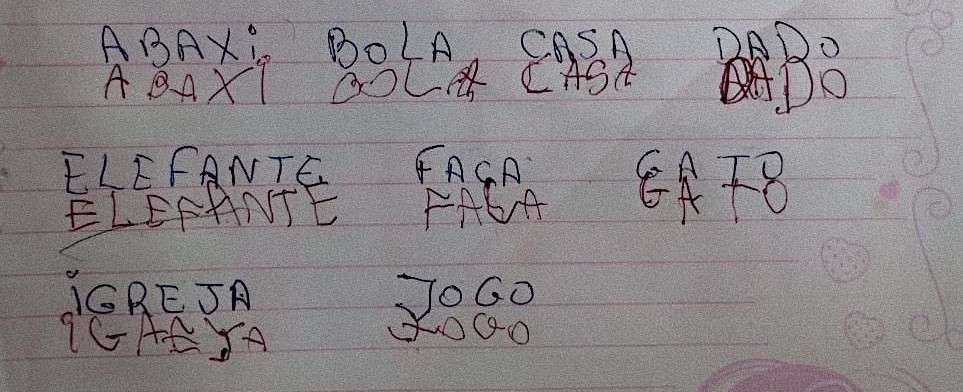 ABAXi BOLA CASA DADO
ABAXI BOLA CASA DADO
ELEFANTE FACA GATO
ELEFANTE FACA GATO
iGREJA JOGO
IGAEJA JOGO